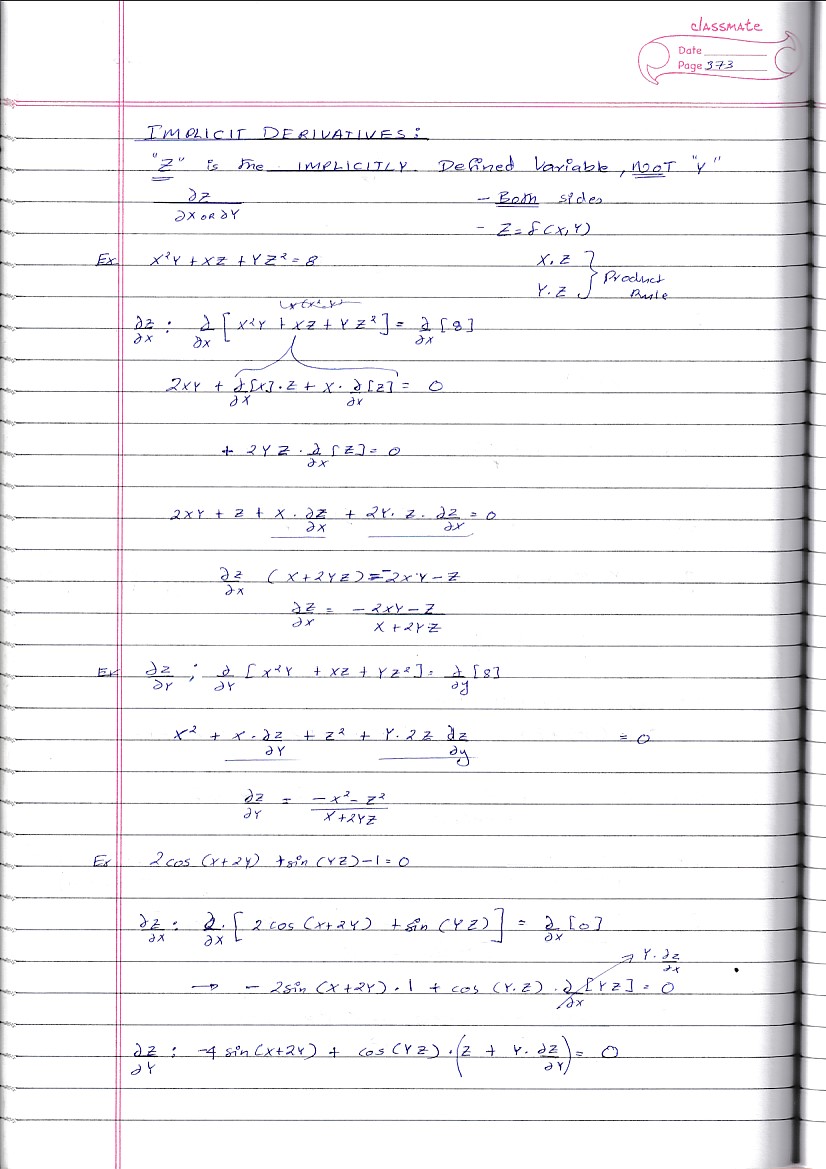 classmate
Date
Page 373
IMPLICIT DERIVATIVES:
"Z" is the IMPLICITLY Defined Variable, NOOT "Y"
∂Z/∂X OR ∂Y - Both sides
- Z = f(X,Y)
Ex X²Y + XZ + YZ² = 8 X.Z } Product
Y.Z } Rule
∂Z/∂X : ∂/∂X [X²Y + XZ + YZ²] = ∂/∂X [8]
2XY + ∂/∂X [X]·Z + X·∂/∂X [Z] = 0
+ 2YZ·∂/∂X [Z] = 0
2XY + Z + X·∂Z/∂X + 2Y·Z·∂Z/∂X = 0
∂Z/∂X (X+2YZ) = -2XY-Z
∂Z/∂X = -2XY-Z / X+2YZ
Ex ∂Z/∂Y ; ∂/∂Y [X²Y + XZ + YZ²] = ∂/∂y [8]
X² + X·∂Z/∂Y + Z² + Y·2Z ∂Z/∂y = 0
∂Z/∂Y = -X²-Z² / X+2YZ
Ex 2cos(X+2Y) + sin(YZ)-1=0
∂Z/∂X : ∂/∂X·[2cos(X+2Y) + sin(YZ)] = ∂/∂X [0]
Y·∂Z/∂X
→ -2sin(X+2Y)·1 + cos(Y.Z)·∂/∂X [YZ] = 0
∂Z/∂Y : -4sin(X+2Y) + cos(YZ)·(Z + Y·∂Z/∂Y) = 0